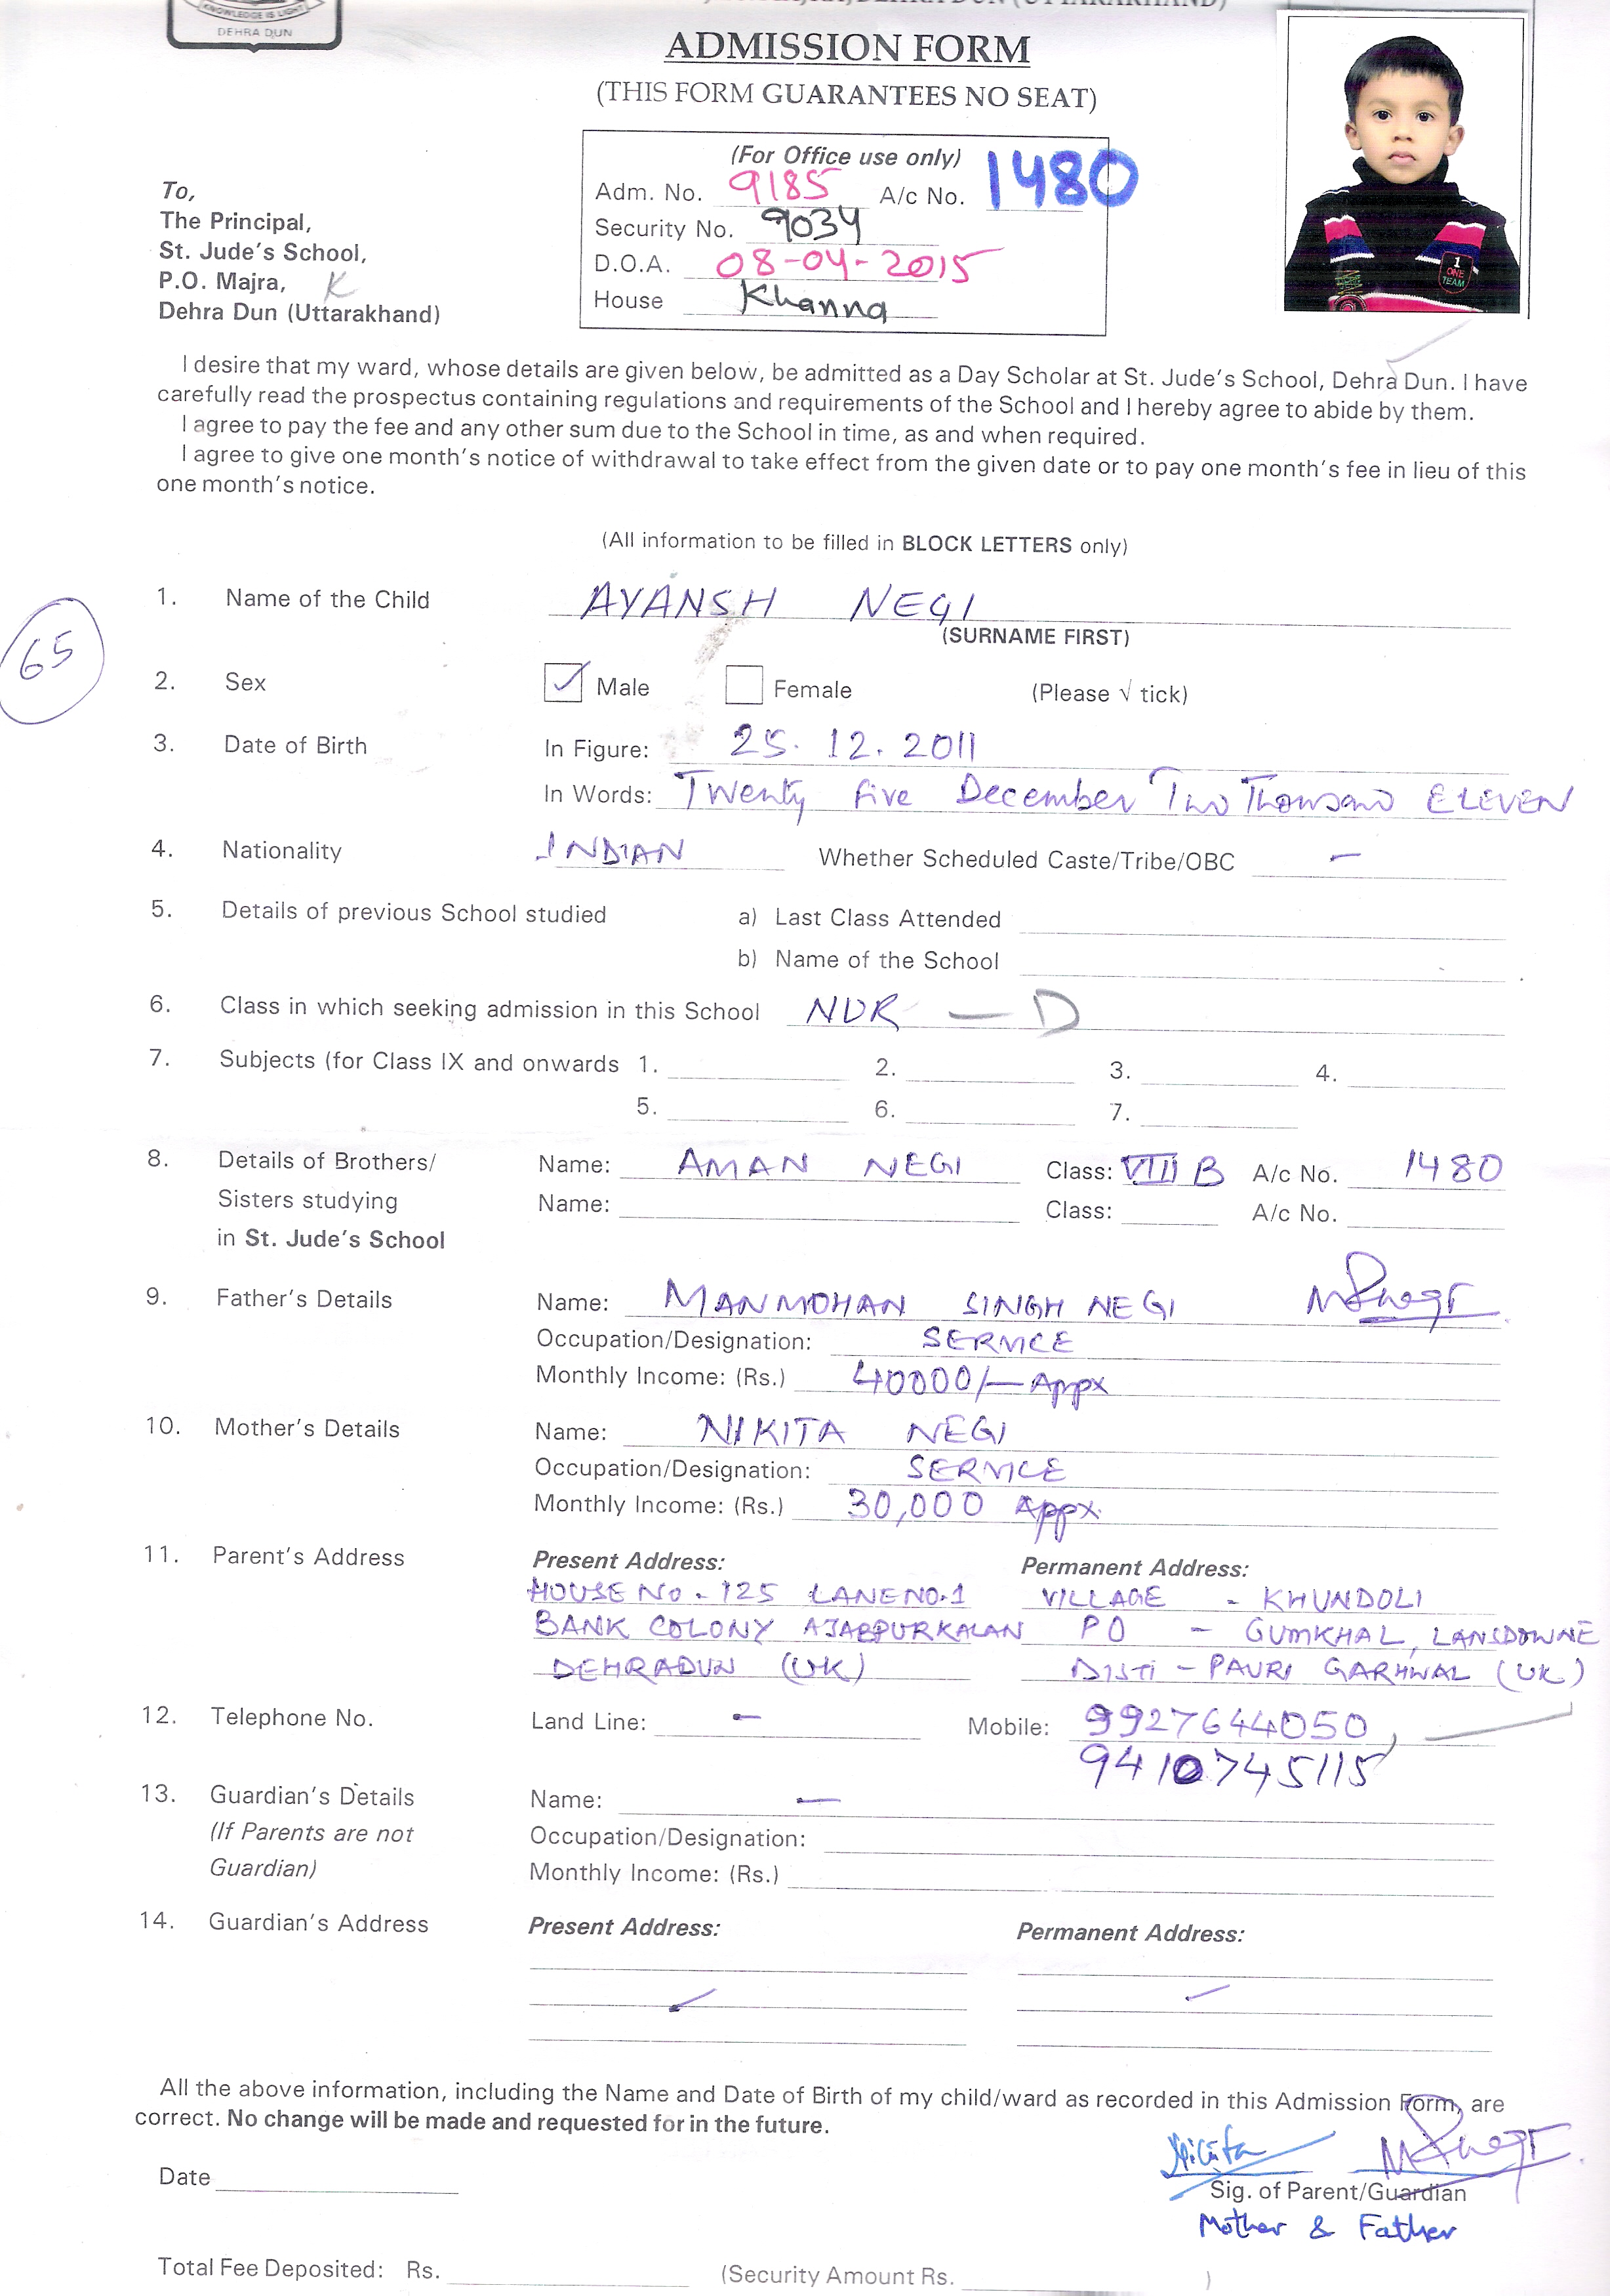 KNOWLEDGE IS LIGHT
DEHRA DUN
ADMISSION FORM
(THIS FORM GUARANTEES NO SEAT)
(For Office use only)
Adm. No. 9185 A/c No. 1480
Security No. 9034
D.O.A. 08-04-2015
House Khanna
To,
The Principal,
St. Jude's School,
P.O. Majra, K
Dehra Dun (Uttarakhand)
1
ONE
TEAM
I desire that my ward, whose details are given below, be admitted as a Day Scholar at St. Jude's School, Dehra Dun. I have
carefully read the prospectus containing regulations and requirements of the School and I hereby agree to abide by them.
I agree to pay the fee and any other sum due to the School in time, as and when required.
I agree to give one month's notice of withdrawal to take effect from the given date or to pay one month's fee in lieu of this
one month's notice.
(All information to be filled in BLOCK LETTERS only)
65
1. Name of the Child AYANSH NEGI
(SURNAME FIRST)
2. Sex ✓ Male Female (Please √ tick)
3. Date of Birth In Figure: 25. 12. 2011
In Words: Twenty five December Two Thousand ELEVEN
4. Nationality INDIAN Whether Scheduled Caste/Tribe/OBC –
5. Details of previous School studied a) Last Class Attended
b) Name of the School
6. Class in which seeking admission in this School NUR — D
7. Subjects (for Class IX and onwards 1. 2. 3. 4.
5. 6. 7.
8. Details of Brothers/ Name: AMAN NEGI Class: VIII B A/c No. 1480
Sisters studying Name: Class: A/c No.
in St. Jude's School
9. Father's Details Name: MANMOHAN SINGH NEGI MSnegi
Occupation/Designation: SERVICE
Monthly Income: (Rs.) 40000/— Appx
10. Mother's Details Name: NIKITA NEGI
Occupation/Designation: SERVICE
Monthly Income: (Rs.) 30,000 Appx.
11. Parent's Address Present Address: Permanent Address:
HOUSE NO. 125 LANE NO.1 VILLAGE - KHUNDOLI
BANK COLONY AJABPURKALAN PO - GUMKHAL, LANSDOWNE
DEHRADUN (UK) DISTT - PAURI GARHWAL (UK)
12. Telephone No. Land Line: – Mobile: 9927644050,
9410745115
13. Guardian's Details Name: —
(If Parents are not Occupation/Designation:
Guardian) Monthly Income: (Rs.)
14. Guardian's Address Present Address: Permanent Address:
All the above information, including the Name and Date of Birth of my child/ward as recorded in this Admission Form, are
correct. No change will be made and requested for in the future.
Nikita MSnegi
Date Sig. of Parent/Guardian
Mother & Father
Total Fee Deposited: Rs. (Security Amount Rs. )